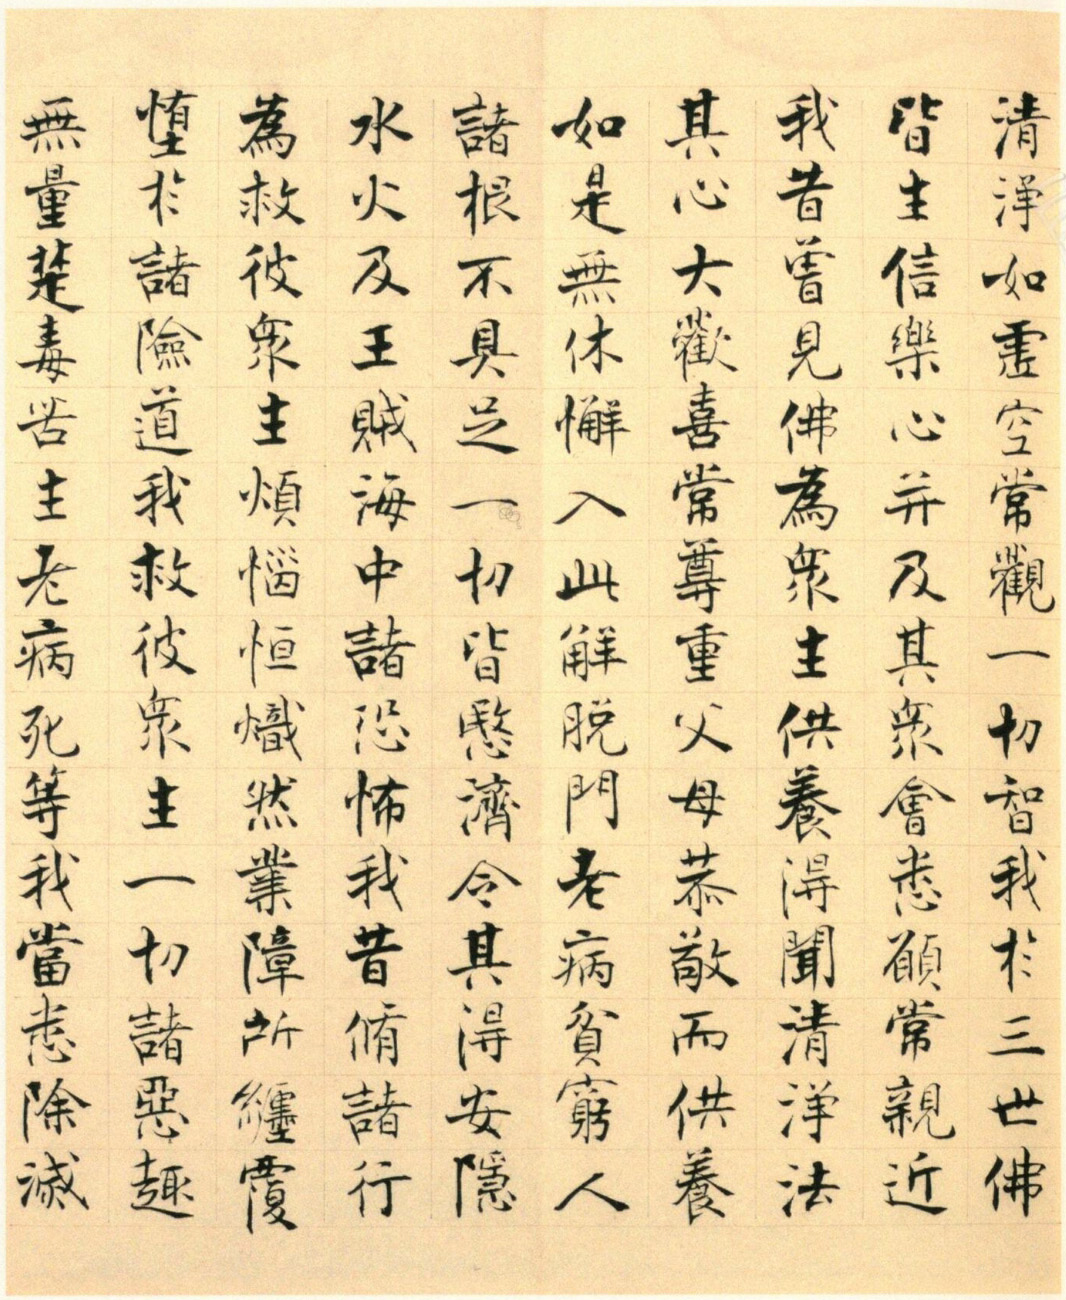 清淨如虛空常觀一切智我於三世佛
皆生信樂心并及其眾會悉願常親近
我昔曾見佛為眾生供養得聞清淨法
其心大歡喜常尊重父母恭敬而供養
如是無休懈入此解脫門老病貧窮人
諸根不具足一切皆愍濟令其得安隱
水火及王賊海中諸恐怖我昔脩諸行
為救彼眾生煩惱恒熾然業障所纏覆
墮於諸險道我救彼眾生一切諸惡趣
無量楚毒苦生老病死等我當悉除滅